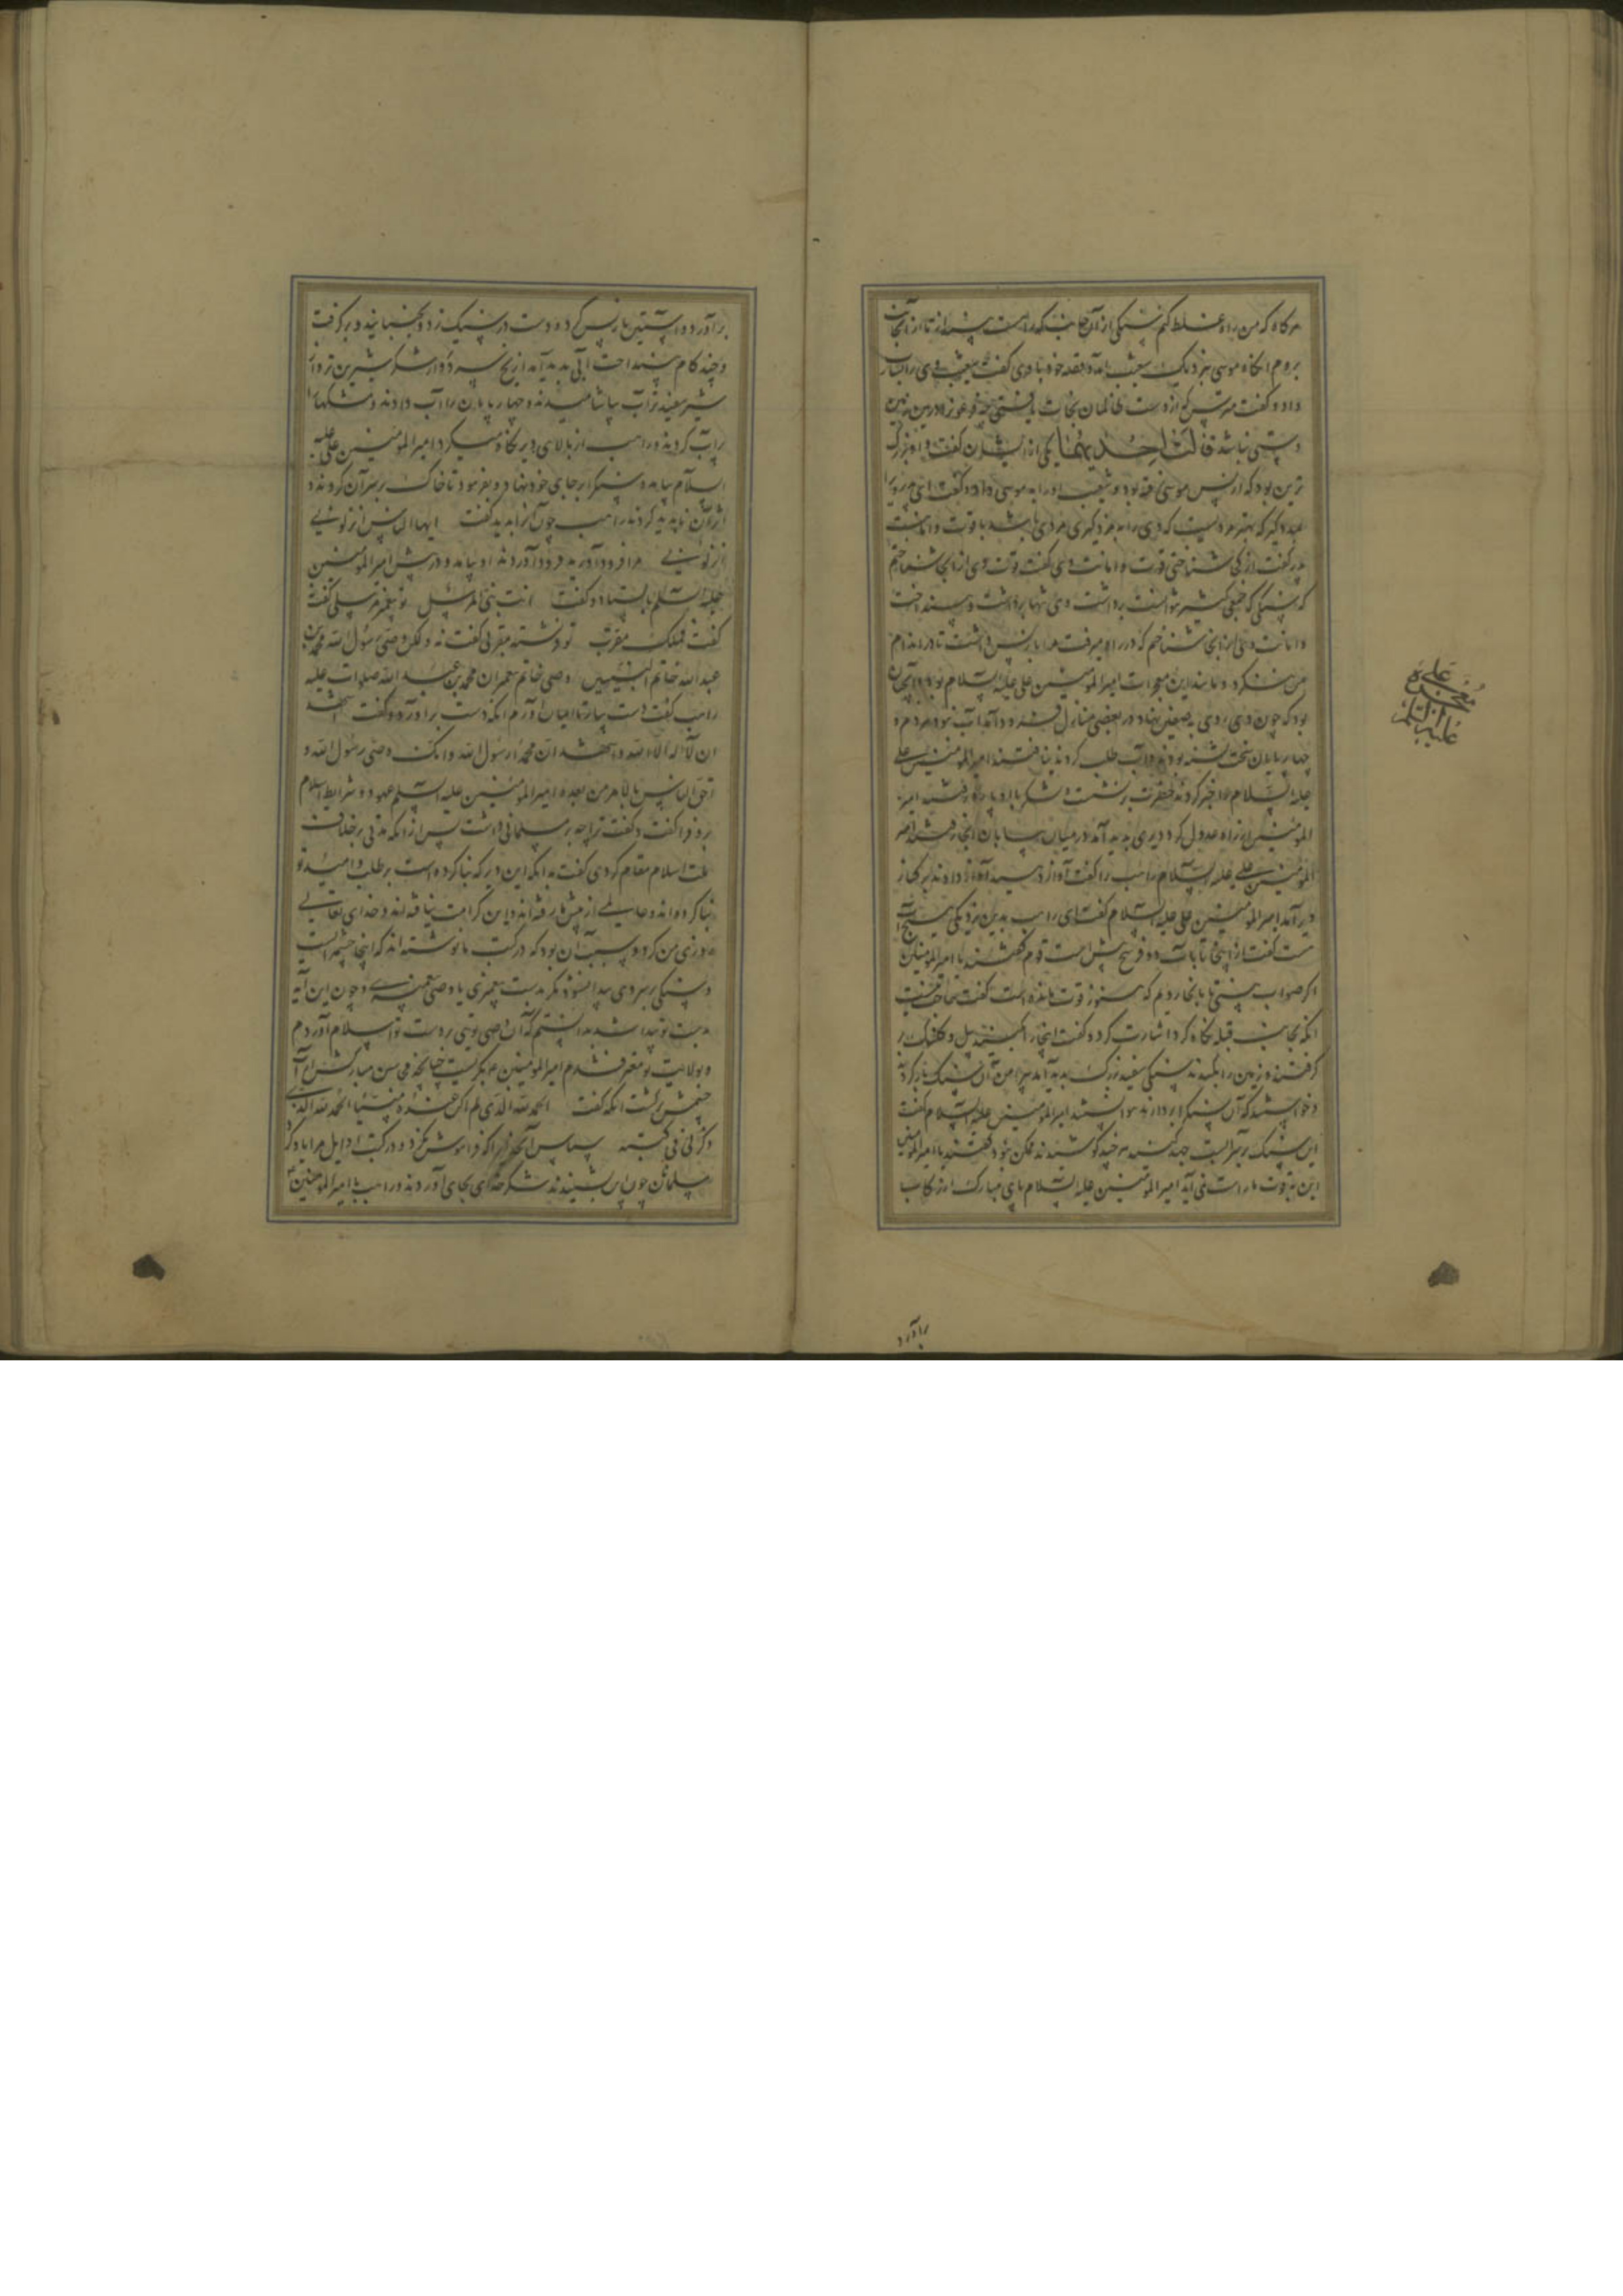 هرکاه که من راه غلط کنم سنکی از آن جانب که راهست بینداز تا از آنجانب
بروم انکاه موسی بنزدیک شعیب آمد و قصه خود با وی کفت شعیب وی را بشارت
داد و کفت مترس که از دست ظالمان نجات یافتی چه فرعون را درین زمین
دستی نباشد قالت احدیهما یکی از ایشان کفت و او بزرک
ترین بود که از پس موسی رفته بود و شعیب او را به موسی داد و کفت ای پدر ویرا
بمزد کیر که بهتر مردیست که وی را به مزد کیری مردی باشد با قوت و امانت
پدر کفت از کی شناختی قوت و امانت وی کفت قوت وی از آنجا شناختم
که سنکی که جمعی کثیر توانست برداشت وی تنها برداشت و بینداخت
و امانت وی از آنجا شناختم که در راه میرفت مرا باز پس داشت تا در اندام
من ننکرد و مانند این معجزات امیرالمؤمنین علی علیه السلام بود و آنچنان
بود که چون وی روی به صفین نهاد در بعضی منازل فرود آمد آب نبود مردم و
چهارپایان سخت تشنه بودند و آب طلب کردند نیافتند امیرالمؤمنین علی
علیه السلام را خبر کردند حضرت برنشست و لشکر با او پاره رفتند امیر
المؤمنین از راه عدول کرد دیری پدید آمد در میان بیابان آنجا رفتند امیر
المؤمنین علی علیه السلام راهب را کفت آواز دهید آواز دادند بر کنار
دیر آمد امیرالمؤمنین علی علیه السلام کفت ای راهب بدین نزدیکی هیچ آب
هست کفت از اینجا تا بآب دو فرسخ بیش است قوم کفتند یا امیرالمؤمنین
اکر صواب بینی تا بآنجا رویم که هنوز قوت مانده است کفت حاجت نیست
آنکه بجانب قبله نکاه کرد اشارت کرد و کفت اینجا را بکنید بیل و کلنک بر
کرفتند و زمین را بکندند سنکی سفید بزرک پدید آمد پیرامن آن سنک باز کردند
و خواستند که آن سنک را بردارند نتوانستند امیرالمؤمنین علیه السلام کفت
این سنک بر سر آبست جهد کنید هرچند کوشیدند ممکن نبود کفتند یا امیرالمؤمنین
این بقوت ما راست نمی آید امیرالمؤمنین علیه السلام پای مبارک از رکاب
معجزه علی
علیه السلام
برآورد
برآورد و آستین باز پس کرد و دست در سنک زد و بجنبانید و برکرفت
و چند کام بینداخت آبی پدید آمد از یخ سردتر و از شکر شیرین تر و از
شیر سفیدتر آب بیاشامیدند و چهارپایان را آب دادند و مشکها را
پرآب کردند و راهب از بالای دیر نکاه میکرد امیرالمؤمنین علی علیه
السلام بیامد و سنک را بر جای خود نهاد و بفرمود تا خاک بر سر آن کردند و
اثر آن ناپدید کردند راهب چون آنرا بدید کفت ایها الناس انزلونی
انزلونی مرا فرود آورید فرود آوردند او بیامد و در پیش امیرالمؤمنین
علیه السلام بایستاد و کفت انت نبی المرسل تو پیغمبر مرسلی کفت نه
کفت فملک مقرب تو فرشته مقربی کفت نه ولکن وصی رسول الله محمد بن
عبد الله خاتم النبیین وصی خاتم پیغمبران محمد بن عبد الله صلوات علیه
راهب کفت دست بیار تا ایمان آورم آنکه دست برآورد و کفت اشهد
ان لا اله الا الله و اشهد ان محمدا رسول الله و انک وصی رسول الله و
احق الناس بالامر من بعده امیرالمؤمنین علیه السلام عهود و شرایط اسلام
برو فراکفت و کفت ترا چه بر مسلمانی داشت پس از آنکه مدتی بر خلاف
ملت اسلام مقام کردی کفت بدانکه این دیر که بنا کرده است بر طلب و امید تو
بنا کرده اند و عالمی از پیش ما رفته اند و این کرامت نیافته اند و خدای تعالی
روزی من کرد و سبب آن بود که در کتب ما نوشته اند که اینجا چشمه ایست
و سنکی بر سر وی پیدا نشود مکر بدست پیغمبری یا وصی پیغمبری و چون این آیه
بدست تو پیدا شد بدانستم که آن وصی توئی بر دست تو اسلام آوردم
و بولایت تو معترف شدم امیرالمؤمنین بکریست چنانچه محاسن مبارکش از آب
چشمش تر کشت آنکه کفت الحمد لله الذی لم اکن عنده منسیا الحمد لله الذی
ذکرنی فی کتبه سپاس آنخدایرا که فراموش نکرد و در کتب اوایل مرا یاد کرد
مسلمانان چون این بشنیدند شکر خدای بجای آوردند و راهب با امیرالمؤمنین